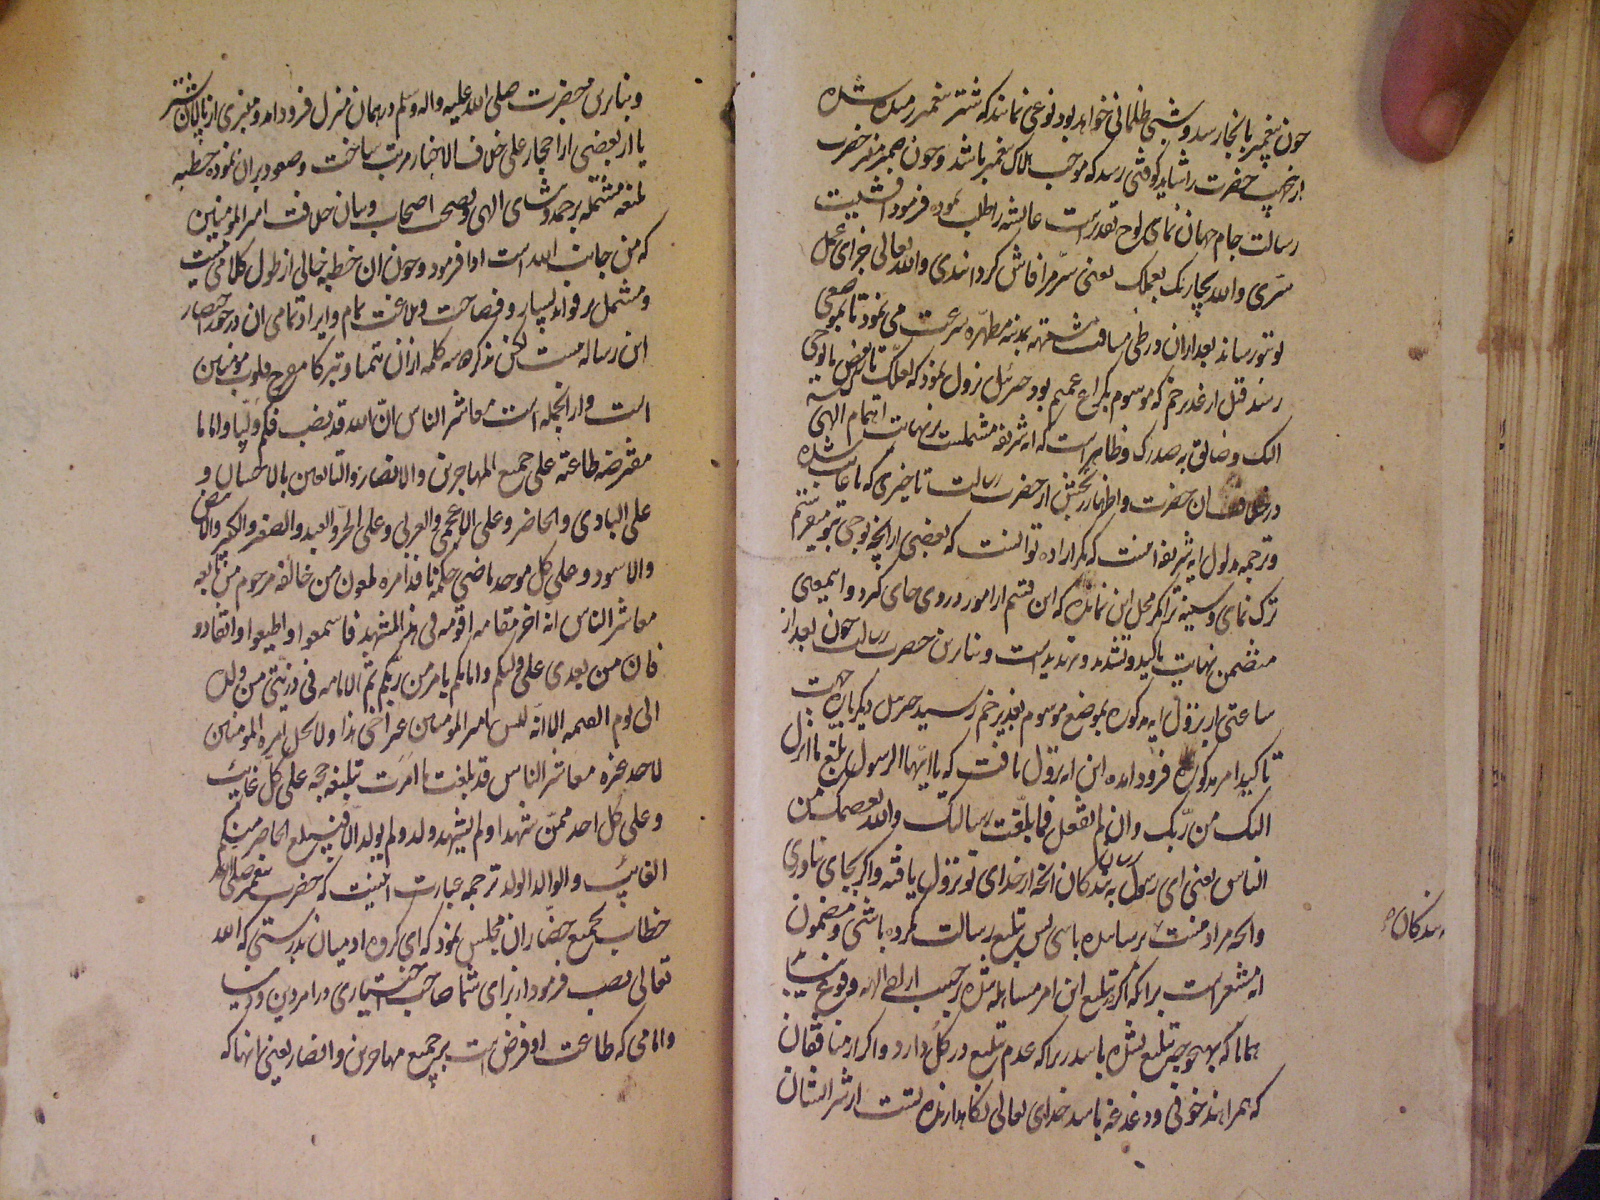 چون پیغمبر بانجا رسد و شبی ظلمانی خواهد بود نوعی نمایند که شتر پیغمبر رمیده شده
حضرت را شاید کوفتی رسد که موجب هلاک پیغمبر باشد و چون ضمیر منیر حضرت
رسالت جام جهان نمای لوح تقدیر است عایشه را طلب نموده فرمود افشیت
سری والله یجازیک بعملک یعنی سر مرا فاش کردانیدی والله تعالی جزای عمل
تو بتو رساند بعد ازان در طی مسافت مدینه مطهره سرعت می نمود تا بموضعی
رسند قبل از غدیر خم که موسوم بکراع عمیم بود جبرئیل نزول نمود که لعلک تارک بعض ما یوحی
الیک و ضائق به صدرک و ظاهر است که آیه شریفه مشتملست بر نهایت اهتمام الهی
در ان حضرت و اظهار رنجش از حضرت رسالت تاخیری که باعث شده
و ترجمه مدلول ایه شریفه اینست که مکر اراده تو انست که بعضی از انچه بوحی بتو میفرستم
ترک نمای و سینه ترا مکر محل این نمانده که این قسم از امور در وی جای کرد و این معنی
متضمن نهایت تاکید و تشدید و تهدید است و بنابرین حضرت رسالت چون بعد از
ساعتی از نزول ایه مذکوره بموضع موسوم بغدیر خم رسید جبرئیل دیکرباره جهت
تاکید امر مذکوره فرود امده این ایه نزول یافت که یا ایها الرسول بلغ ما انزل
الیک من ربک وان لم تفعل فما بلغت رسالتک والله یعصمک من
الناس یعنی ای رسول برسان به بندکان انچه از خدای تو نزول یافته و اکر بجای نیاوری
وانچه مراد منست نرسانیده باشی پس تبلیغ رسالت نکرده باشی و مضمون
ایه مشعر است برانکه اکر تبلیغ این امر
همانا که بهیچ چیز تبلیغ نشده باشد زیرا که عدم تبلیغ در کل دارد و اکر از منافقان
که همراهند خوفی و دغدغه باشد خدای تعالی نکاهدارنده تست از شر ایشان
بندکان
و بنابرین حضرت صلی الله علیه واله وسلم در همان منزل فرود امد و منبری از پالان شتر
یا از بعضی از احجار علی خلاف الاخبار مرتب ساخت و صعود بران نموده خطبه
بلیغه مشتمله بر حمد و ثنای الهی و نصیحت اصحاب و بیان خلافت امیر المومنین
که من جانب الله است ادا فرمود و چون ان خطبه خالی از طول کلامی نیست
و مشتمل بر فواید بسیار و فصاحت و بلاغت تمام و ایراد تمامی ان در خور اختصار
این رساله نیست لکن ذکر سه کلمه ازان تیمنا و تبرکا مفرح قلوب مومنین
است و از انجمله است معاشر الناس ان الله قد نصب لکم ولیا و اماما
مفترضه طاعته علی جمیع المهاجرین والانصار والتابعین بالاحسان و
علی البادی والحاضر وعلی الاعجمی والعربی وعلی الحر والعبد والصغیر والکبیر والابیض
والاسود وعلی کل موحد ماض حکمه نافذ امره ملعون من خالفه مرحوم من تابعه
معاشر الناس انه اخر مقام اقومه فی هذا المشهد فاسمعوا واطیعوا وانقادو
فان من بعدی علی ولیکم وامامکم بامر من ربکم ثم الامامه فی ذریتی من ولدی
الی یوم القیمه الا انه لیس امیر المومنین غیر اخی هذا ولا تحل امره المومنین
لاحد غیره معاشر الناس قد بلغت ما امرت تبلیغه حجه علی کل غایب
وعلی کل احد ممن شهد او لم یشهد ولد ولم یولد الا فلیبلغ الحاضر منکم
الغایب والوالد الولد ترجمه عبارت اینست که حضرت پیغمبر صلی الله
خطاب بجمیع حضار ان مجلس نمود که ای کروه ادمیان بدرستی که الله
تعالی نصب فرمود از برای شما صاحب اختیاری در امر دین و دنیا
وامامی که طاعت او فرض است بر جمیع مهاجرین و انصار یعنی انها که